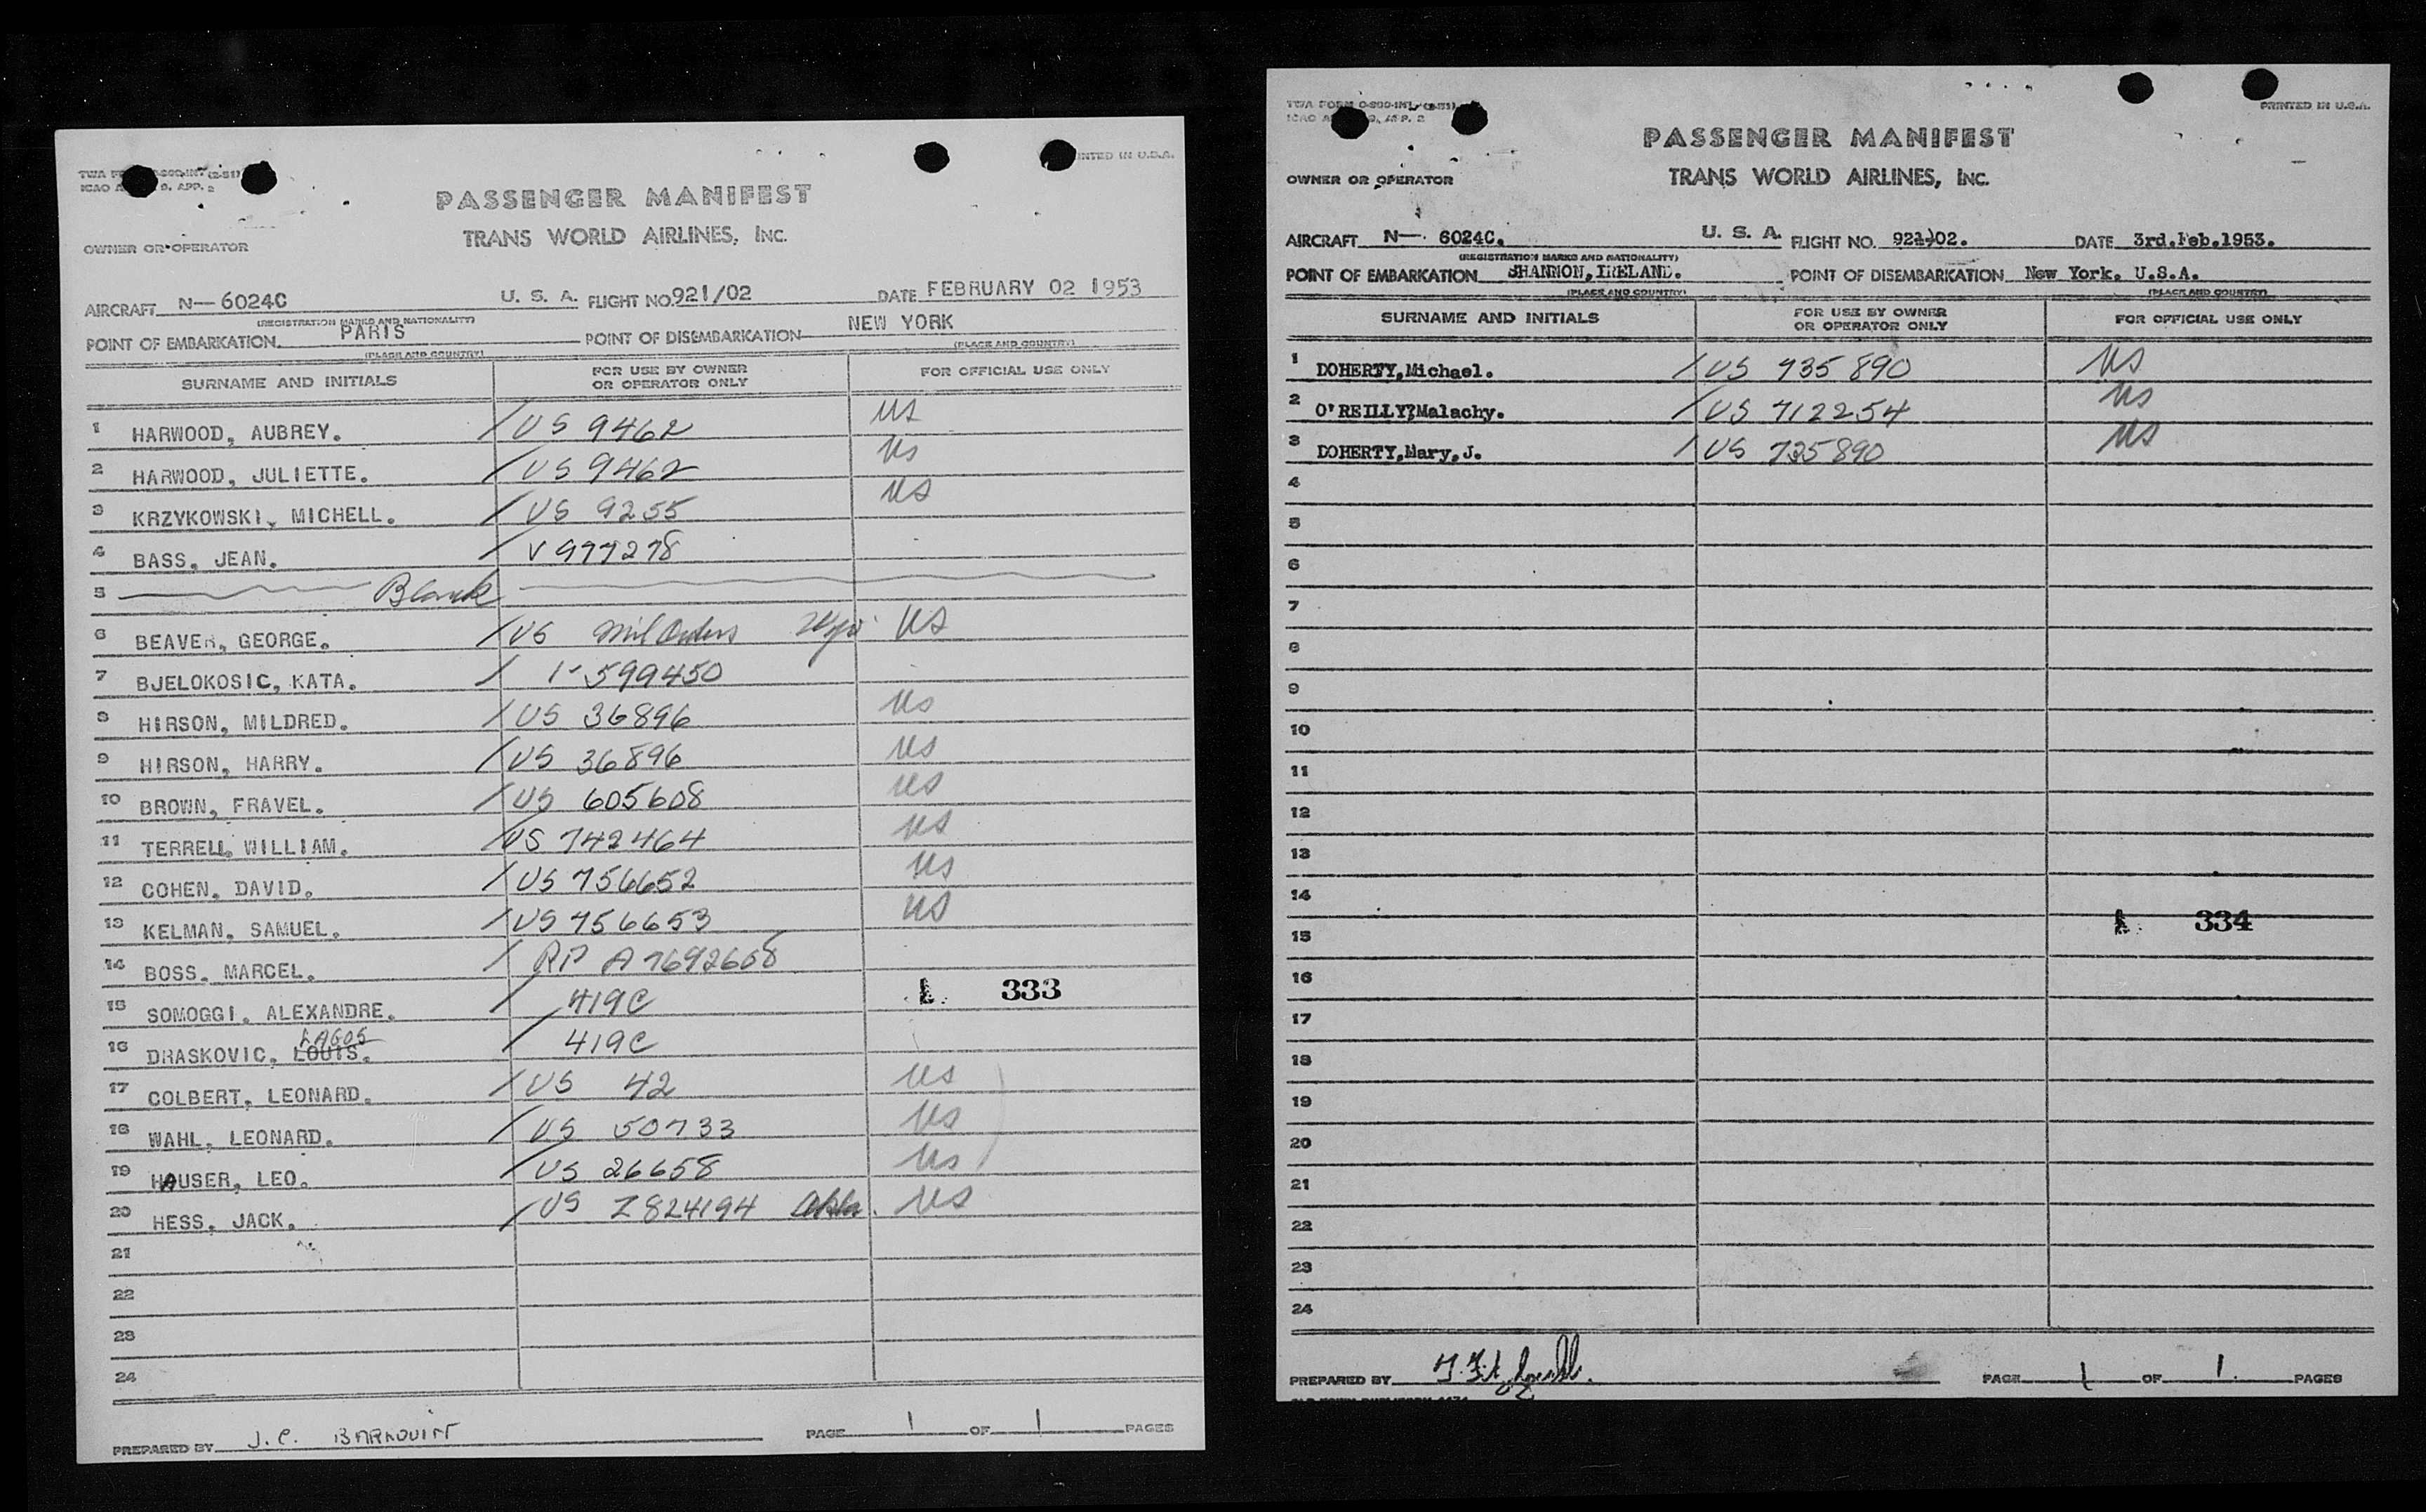 PASSENGER MANIFEST
TRANS WORLD AIRLINES, INC.
OWNER OR OPERATOR
AIRCRAFT N—6024C U. S. A. FLIGHT NO. 921/02 DATE FEBRUARY 02 1953
(REGISTRATION MARKS AND NATIONALITY)
POINT OF EMBARKATION PARIS POINT OF DISEMBARKATION NEW YORK
(PLACE AND COUNTRY) (PLACE AND COUNTRY)
SURNAME AND INITIALS FOR USE BY OWNER OR OPERATOR ONLY FOR OFFICIAL USE ONLY
1 HARWOOD, AUBREY. / US 9462 US
2 HARWOOD, JULIETTE. / US 9462 US
3 KRZYKOWSKI, MICHELL. / US 9255 US
4 BASS, JEAN. / V 977278
5 Blank
6 BEAVER, GEORGE. / US Mil Orders US
7 BJELOKOSIC, KATA. / 1-599450
8 HIRSON, MILDRED. / US 36896 US
9 HIRSON, HARRY. / US 36896 US
10 BROWN, FRAVEL. / US 605608 US
11 TERRELL, WILLIAM. / US 742464 US
12 COHEN, DAVID. / US 756652 US
13 KELMAN, SAMUEL. / US 756653 US
14 BOSS, MARCEL. / RP A7692658
15 SOMOGGI, ALEXANDRE. / 419C L 333
LAGOS
16 DRASKOVIC, LOUIS. / 419C
17 COLBERT, LEONARD. / US 42 US
18 WAHL, LEONARD. / US 50733 US
19 HAUSER, LEO. / US 26658 US
20 HESS, JACK. / US Z824194 US
21
22
23
24
PREPARED BY J. C. BARNOUIN PAGE 1 OF 1 PAGES
TWA FORM O-800-INT. (2-51) PRINTED IN U.S.A.
PASSENGER MANIFEST
OWNER OR OPERATOR TRANS WORLD AIRLINES, INC.
AIRCRAFT N— 6024C. U. S. A. FLIGHT NO. 921/02. DATE 3rd.Feb.1953.
(REGISTRATION MARKS AND NATIONALITY)
POINT OF EMBARKATION SHANNON, IRELAND. POINT OF DISEMBARKATION New York, U.S.A.
(PLACE AND COUNTRY) (PLACE AND COUNTRY)
SURNAME AND INITIALS FOR USE BY OWNER OR OPERATOR ONLY FOR OFFICIAL USE ONLY
1 DOHERTY,Michael. / US 735890 US
2 O'REILLY,Malachy. / US 712254 US
3 DOHERTY,Mary,J. / US 735890 US
4
5
6
7
8
9
10
11
12
13
14
15 334
16
17
18
19
20
21
22
23
24
PREPARED BY PAGE 1 OF 1. PAGES